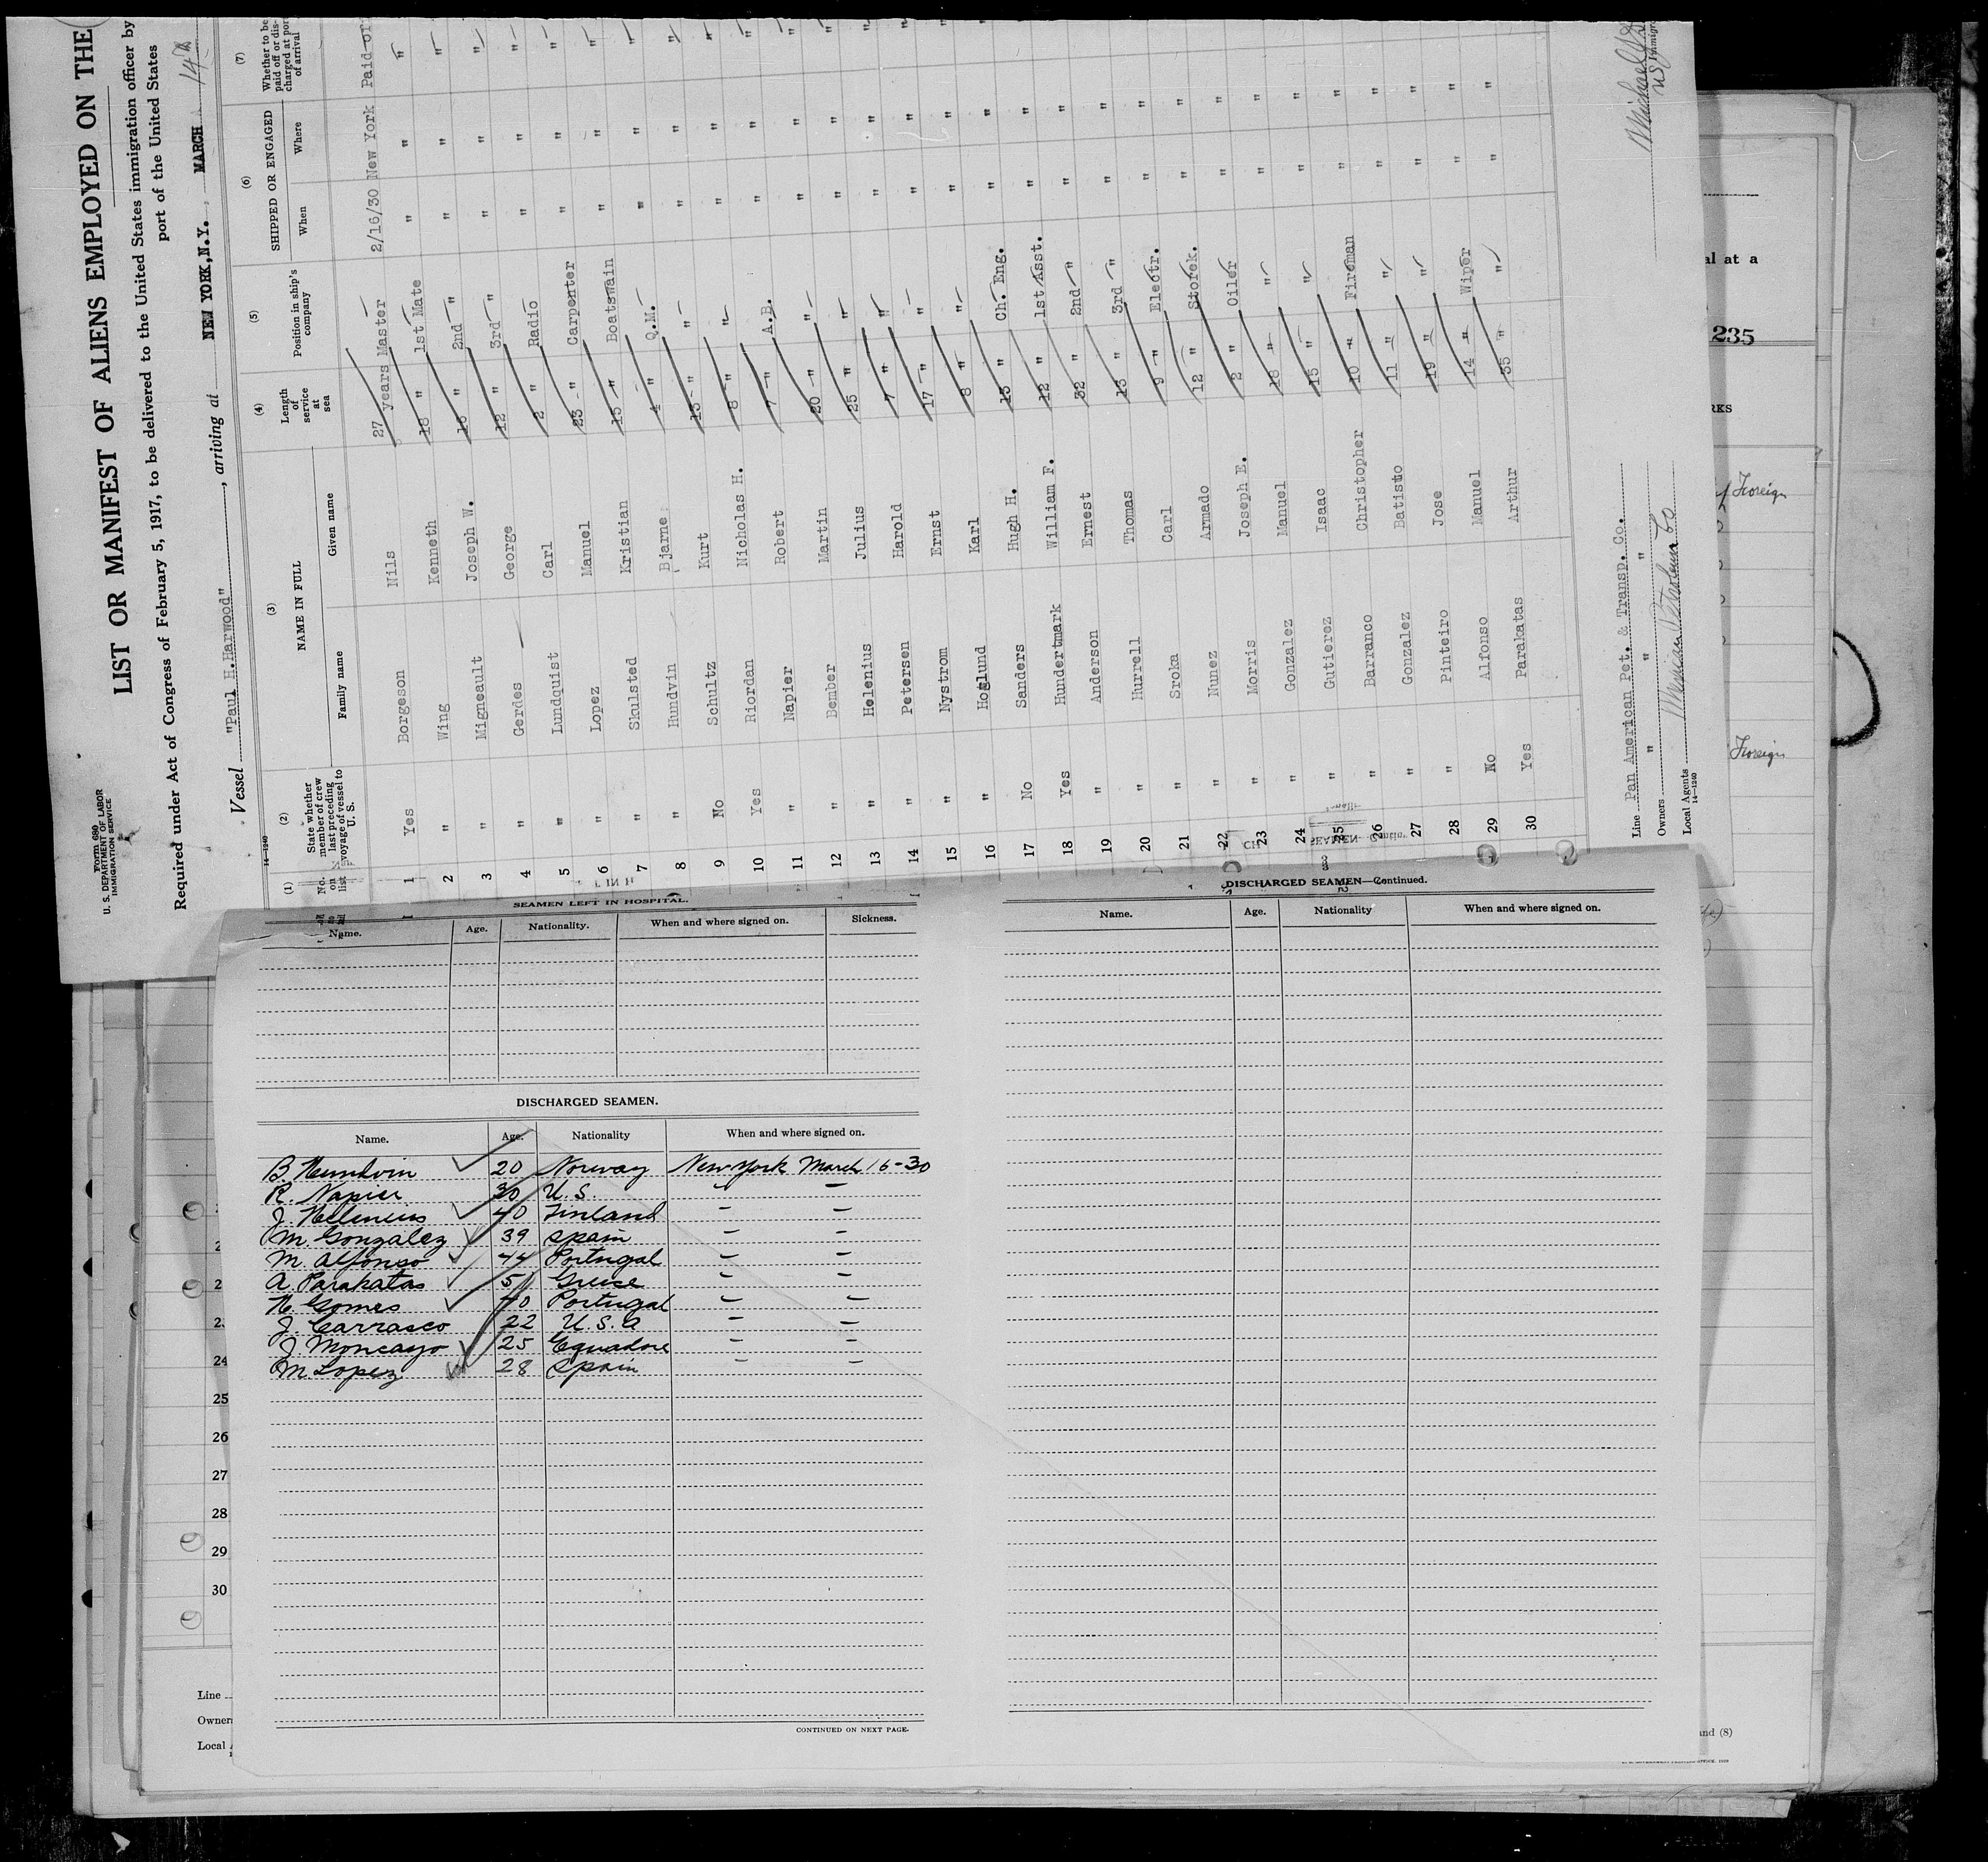 Form 680
U. S. DEPARTMENT OF LABOR
IMMIGRATION SERVICE
LIST OR MANIFEST OF ALIENS EMPLOYED ON THE
Required under Act of Congress of February 5, 1917, to be delivered to the United States immigration officer by
port of the United States
Vessel "Paul H.Harwood", arriving at NEW YORK,N.Y. MARCH 14th
14—1240
(1) (2) (3) (4) (5) (6) (7)
No. on list
State whether member of crew last preceding voyage of vessel to U. S.
NAME IN FULL
Family name Given name
Length of service at sea
Position in ship's company
SHIPPED OR ENGAGED
When Where
Whether to be paid off or discharged at port of arrival
1 Yes Borgeson Nils 27 years Master 2/16/30 New York Paid off
2 " Wing Kenneth 18 " 1st Mate " " "
3 " Migneault Joseph W. 16 " 2nd " " " "
4 " Gerdes George 12 " 3rd " " " "
5 " Lundquist Carl 2 " Radio " " "
6 " Lopez Manuel 23 " Carpenter " " "
7 " Skulsted Kristian 15 " Boatswain " " "
8 " Hundvin Bjarne 4 " Q.M. " " "
9 No Schultz Kurt 13 " " " " "
10 Yes Riordan Nicholas H. 8 " " " " "
11 " Napier Robert 7 " A.B. " " "
12 " Bember Martin 20 " " " " "
13 " Helenius Julius 25 " " " " "
14 " Petersen Harold 7 " " " " "
15 " Nystrom Ernst 17 " " " " "
16 " Hoglund Karl 8 " " " " "
17 No Sanders Hugh H. 13 " Ch. Eng. " "
18 Yes Hundertmark William F. 12 " 1st Asst. " "
19 " Anderson Ernest 32 " 2nd " " "
20 " Hurrell Thomas 13 " 3rd " " "
21 " Sroka Carl 9 " Electr. " "
22 " Nunez Armado 12 " Storek. " "
23 " Morris Joseph E. 2 " Oiler " "
24 " Gonzalez Manuel 18 " " " "
25 " Gutierez Isaac 15 " " " "
26 " Barranco Christopher 10 " Fireman " "
27 " Gonzalez Batisto 11 " " " "
28 " Pinteiro Jose 19 " " " "
29 No Alfonso Manuel 14 " Wiper " "
30 Yes Parakatas Arthur 35 " " " "
Line Pan American Pet. & Transp. Co.
Owners " " "
Local Agents Mexican Petroleum Co
14—1240
al at a
235
RKS
Foreign
Foreign
SEAMEN LEFT IN HOSPITAL.
Name. Age. Nationality. When and where signed on. Sickness.
DISCHARGED SEAMEN.
Name. Age. Nationality When and where signed on.
B. Hundvin 20 Norway New York March 16-30
R. Napier 30 U.S. " "
J. Helenius 40 Finland " "
M. Gonzalez 39 Spain " "
M. Alfonso 44 Portugal " "
A. Parakatas 51 Greise " "
H. Gomes 40 Portugal " "
J. Carrasco 22 U.S.A " "
J. Moncayo 25 Equadore " "
M. Lopez 28 Spain " "
CONTINUED ON NEXT PAGE.
DISCHARGED SEAMEN—Continued.
Name. Age. Nationality When and where signed on.
24
25
26
27
28
29
30
Line
Owner
Local
and (8)